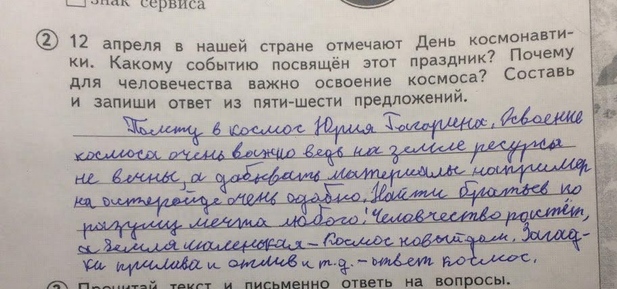 знак сервиса
2 12 апреля в нашей стране отмечают День космонавти-
ки. Какому событию посвящён этот праздник? Почему
для человечества важно освоение космоса? Составь
и запиши ответ из пяти-шести предложений.
Полёту в космос Юрия Гагарина. Освоение
космоса очень важно ведь на земле ресурсы
не вечны, а добывать материалы например
на астеройде очень одобно. Найти братьев по
разуму мечта любого! Человчество растёт,
а Земля маленькая - Космос новый дом. Загад-
ки прилива и отлив и т.д. - ответ космос.
Прочитай текст и письменно ответь на вопросы.